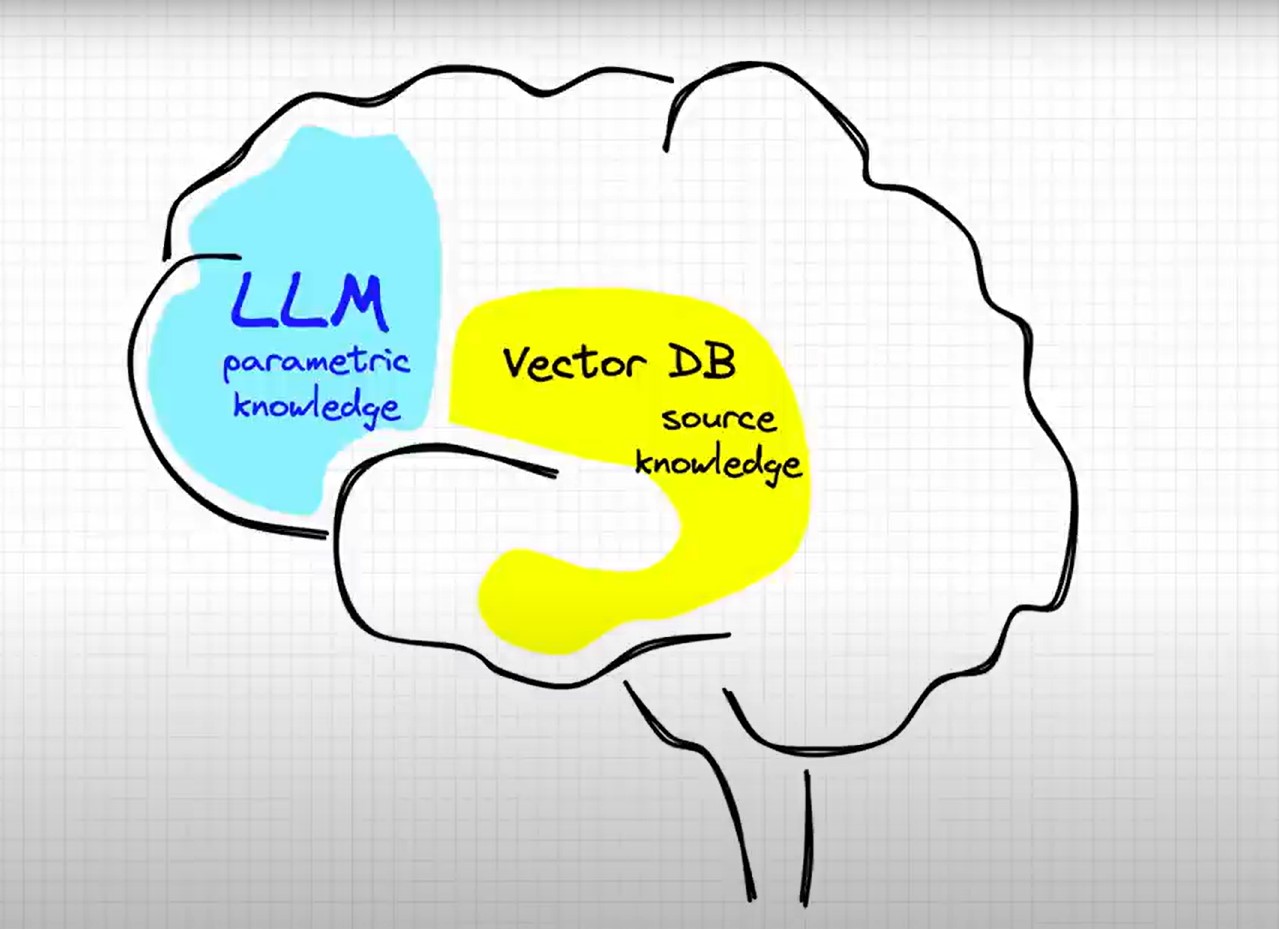 LLM
parametric
knowledge
Vector DB
source
knowledge